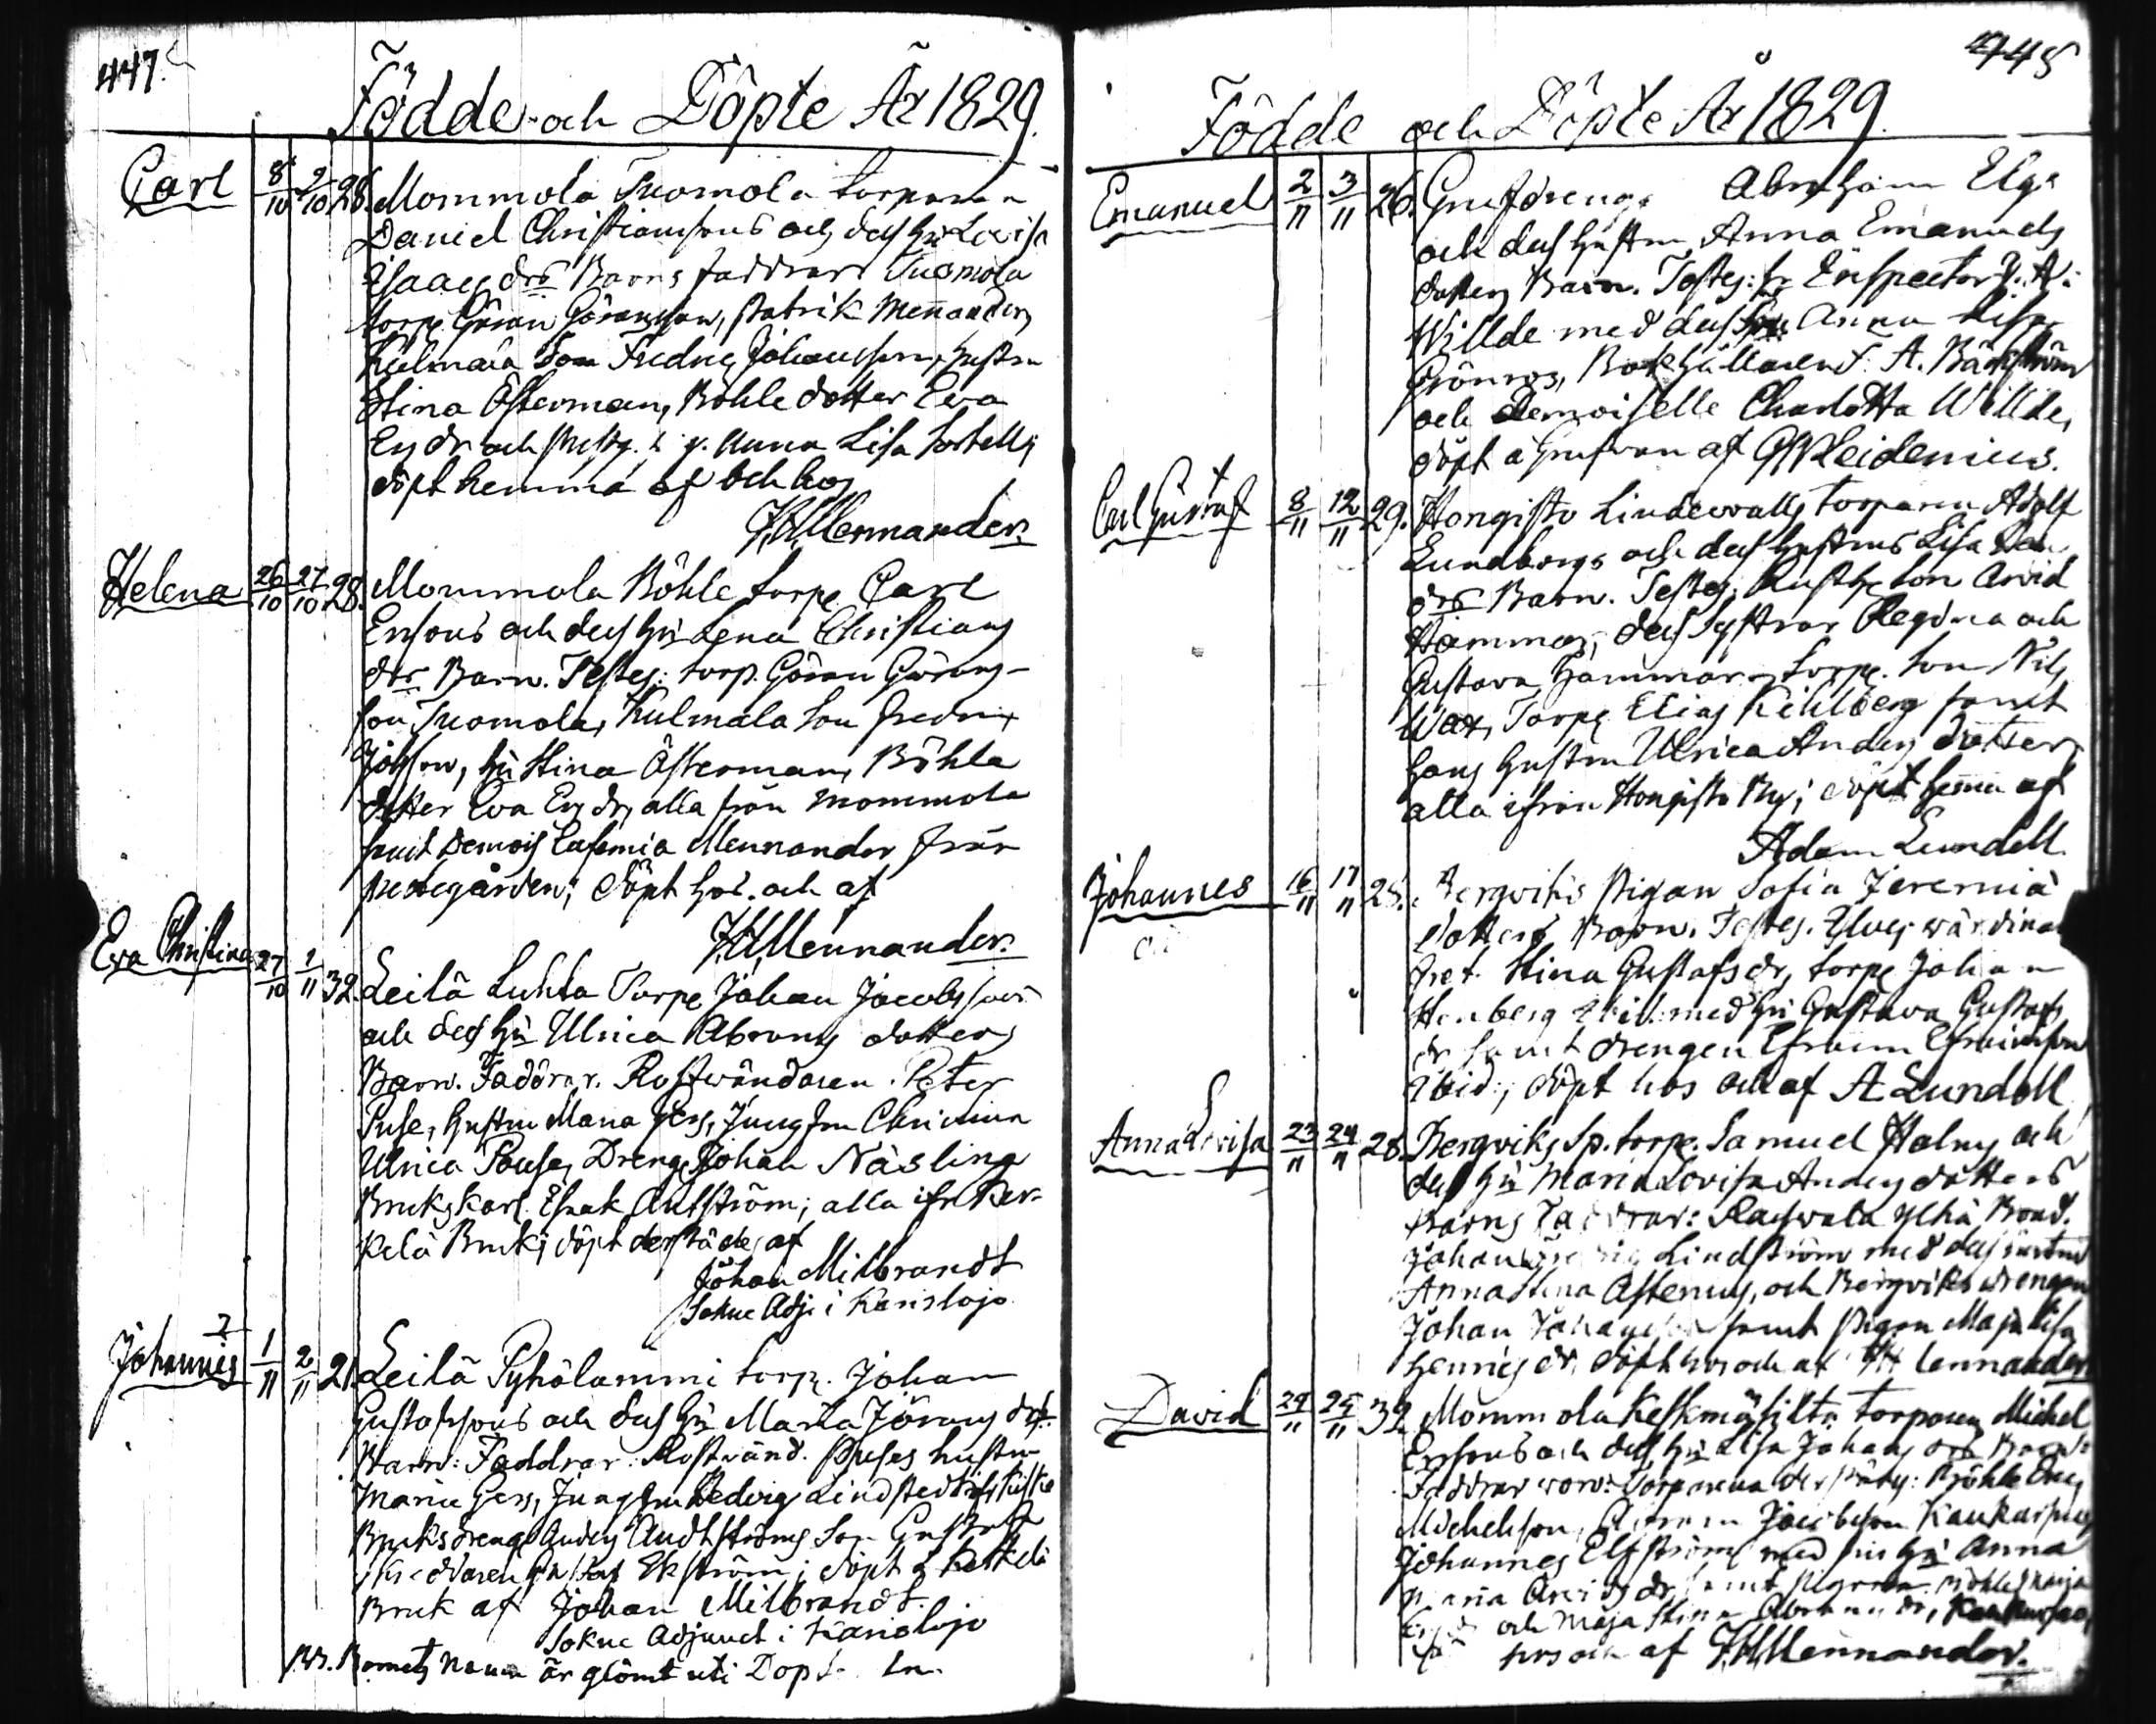 447.
Födde och Döpte År 1829.
Carl 8/10 9/10 28. Mommola Tuomola torparen
Daniel Christiansons och dess Hu Lovisa
Isaacs drs Barns faddrar Tuomola
torp. Göran Göransson, Patrik Mennander,
Kulmala Son Fredric Johansson, hustru
Stina Österman, Böhle dotter Eva
Ers dr och Anna Lisa
döpt hemma af och hos
J.H. Mennander.
Helena 26/10 27/10 28. Mommola Böhle torp. Carl
Ersons och dess Hu Lena Christians
drs Barn. Testes: torp. Göran Görans-
son Tuomola, Kulmala Son Fredric
Johsson, hu Stina Österman, Böhle
dotter Eva Ers dr, alla från Mommola
samt Demois Eufemia Mennander från
prestegården; döpt hos och af
J.H. Mennander.
Eva Christina 27/10 1/11 32. Leilä Luhta Torp. Johan Jacobssons
och dess Hu Ulrica Abrams dotters
Barn. Faddrar. Rostvändaren Peter
Puse, hustru Maria Gers, Jungfru Christina
Ulrica Puse, Dreng Johan Näsling
Brukskarl Isak Ahlström; alla ifr. Ker-
kelä Bruk; döpt derstädes af
Johan Milbrandt
Sokne Adj. i Karislojo
Johannes 1/11 2/11 21. Leilä Pyhälammi torp. Johan
Gustafssons och dess Hu Maria Jörans drs
Barn: Faddrar: Rostvänd. Puses hustru
Maria Gers, Jungfru Hedvig Lindstedt
Bruksdreng Anders Son Gustaf
Ekström; döpt å Kerkelä
Bruk af Johan Milbrandt.
Sokne Adjunct i Karislojo
NB. Barnets namn är glömt uti Dop
448
Födde och Döpte År 1829
Emanuel 2/11 3/11 26. Grufdrengs Abraham Elgs
och dess hustru Anna Emanuels
dotters Barn. Testes: hr Inspector
Willde med dess fru Anna Lisa
Grönroos, Bokhållaren F. A. Bäckström
och Demoiselle Charlotta Willde,
döpt å Grufvan af Heidenius.
Carl Gustaf 8/11 12/11 29. Hongisto Lindewalls torparen Adolf
Lundbergs och dess hustrus Lisa
drs Barn. Testes: Rusth. Son Arvid
Hammar, dess systrar Regina och
Gustava Hammar, torp. Son Nils
Wax, Torp. Elias Kihlberg samt
hans hustru Ulrica Anders dotter,
alla ifrån Hongisto By; döpt hemma af
Adam Lundell
Johannes 16/11 17/11 25. Bergviks Pigan Sofia Jeremiæ
dotters Barn. Testes. värdinnan
Stina Gustafs dr, torp. Johan
Stenberg ibid. med Hu Gustava Gustafs
dr samt drengen Efraim Efraimsson
ibid., döpt hos och af A Lundell
Anna Lovisa 23/11 24/11 28. Bergviks Sp. torp. Samuel Holms och
dess Hu Maria Lovisa Anders dotters
Barns Faddrar: Rajvala Bond.
Johan Lindström med dess hustru
Anna Stina, och Bergviks drengen
Johan Johansson samt Pigan Maja Lisa
Henrics dr. döpt hos och af J.H. Mennander.
David 24/11 25/11 32 Mommola Keskmäsilta torparen Michel
Ersons och dess Hu Lisa Johans drs Barn:
Faddrar voro: Torparena derstädes: Böhle Eric
Michelsson, Jacobsson
Johannes Elfström med sin Hu Anna
Maria Arvids dr, samt
och Maja Stina Abrams dr,
hos och af J.H. Mennander.